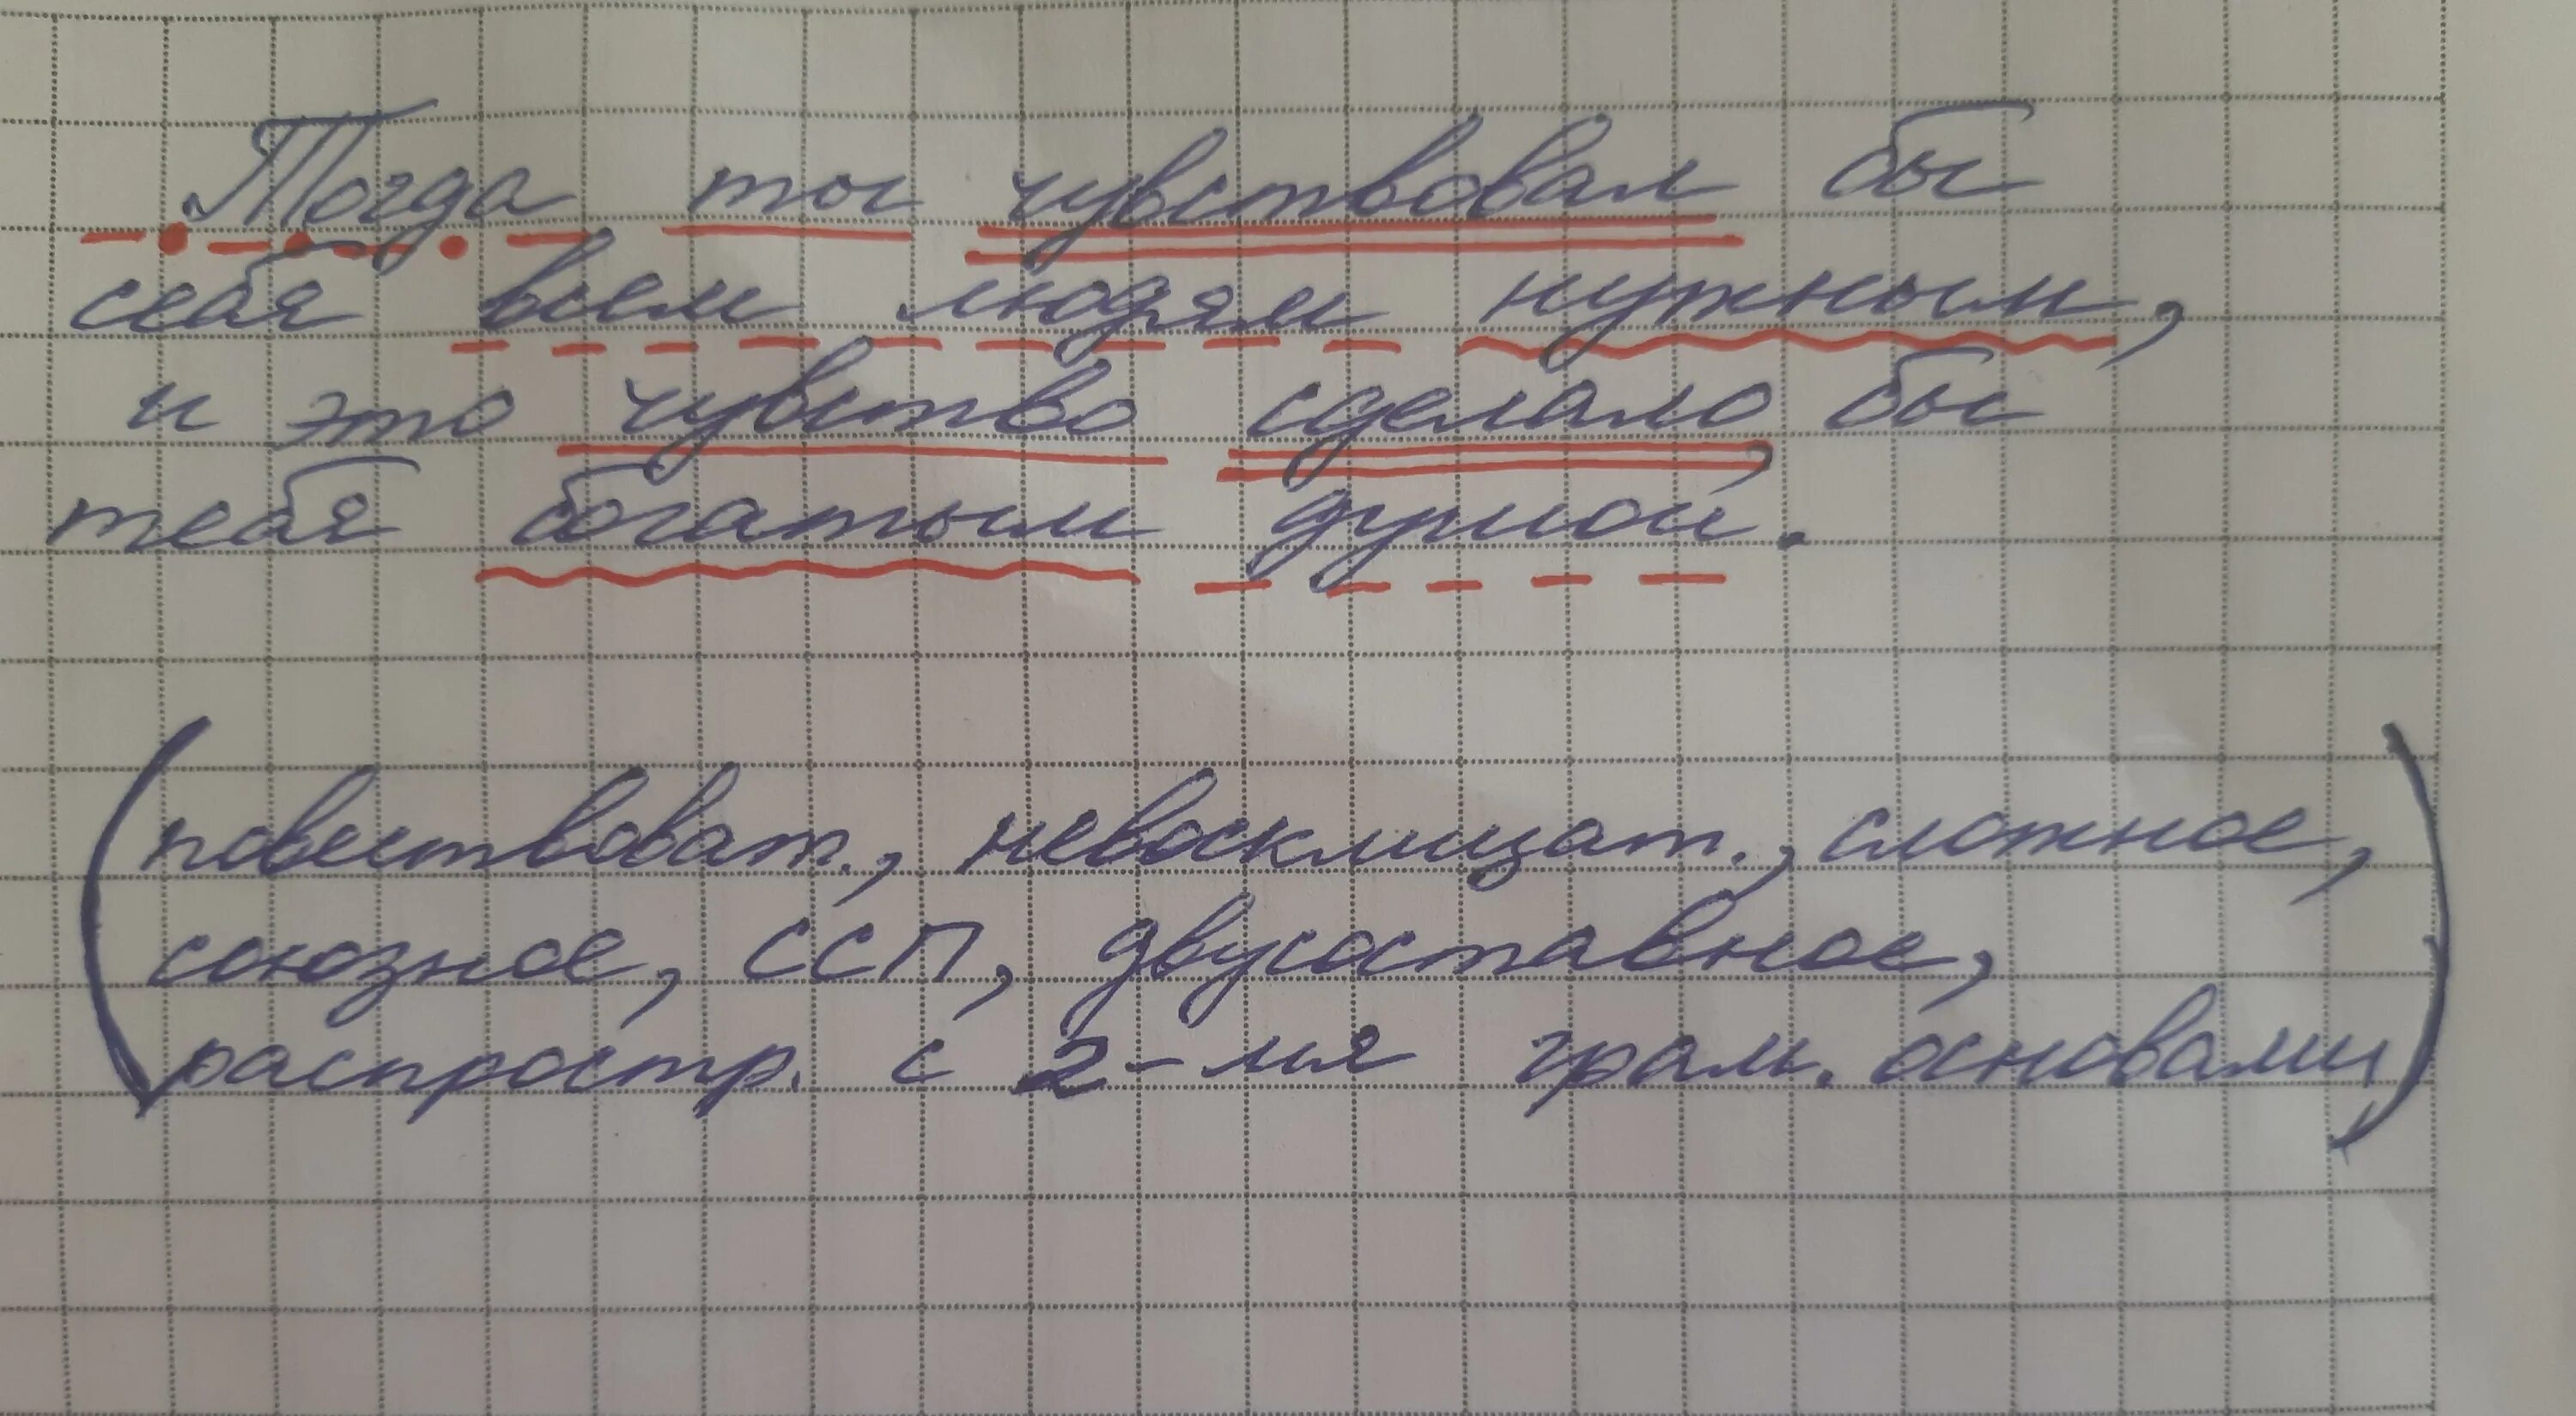 Тогда ты чувствовал бы
себя всем людям нужным,
и это чувство сделало бы
тебя богатым душой.
(повествоват., невосклицат., сложное,
союзное, ССП, двусоставное,
распростр. с 2-мя грам. основами)